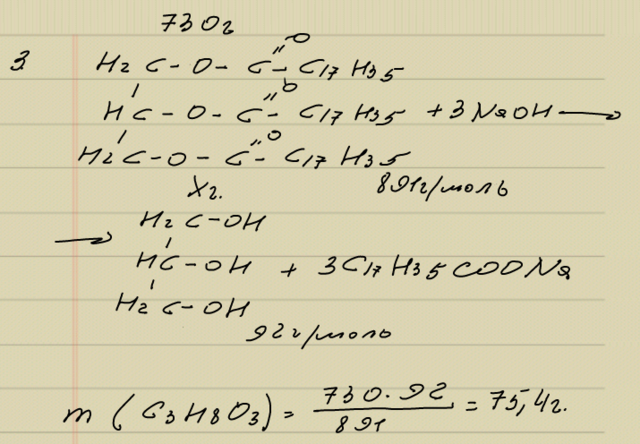 730г
3. H2C-O-C=O-C17H35
HC-O-C=O-C17H35 +3NaOH→
H2C-O-C=O-C17H35
Xг. 891г/моль
→ H2C-OH
HC-OH + 3C17H35COONa
H2C-OH
92г/моль
m (C3H8O3) = 730·92/891 = 75,4г.